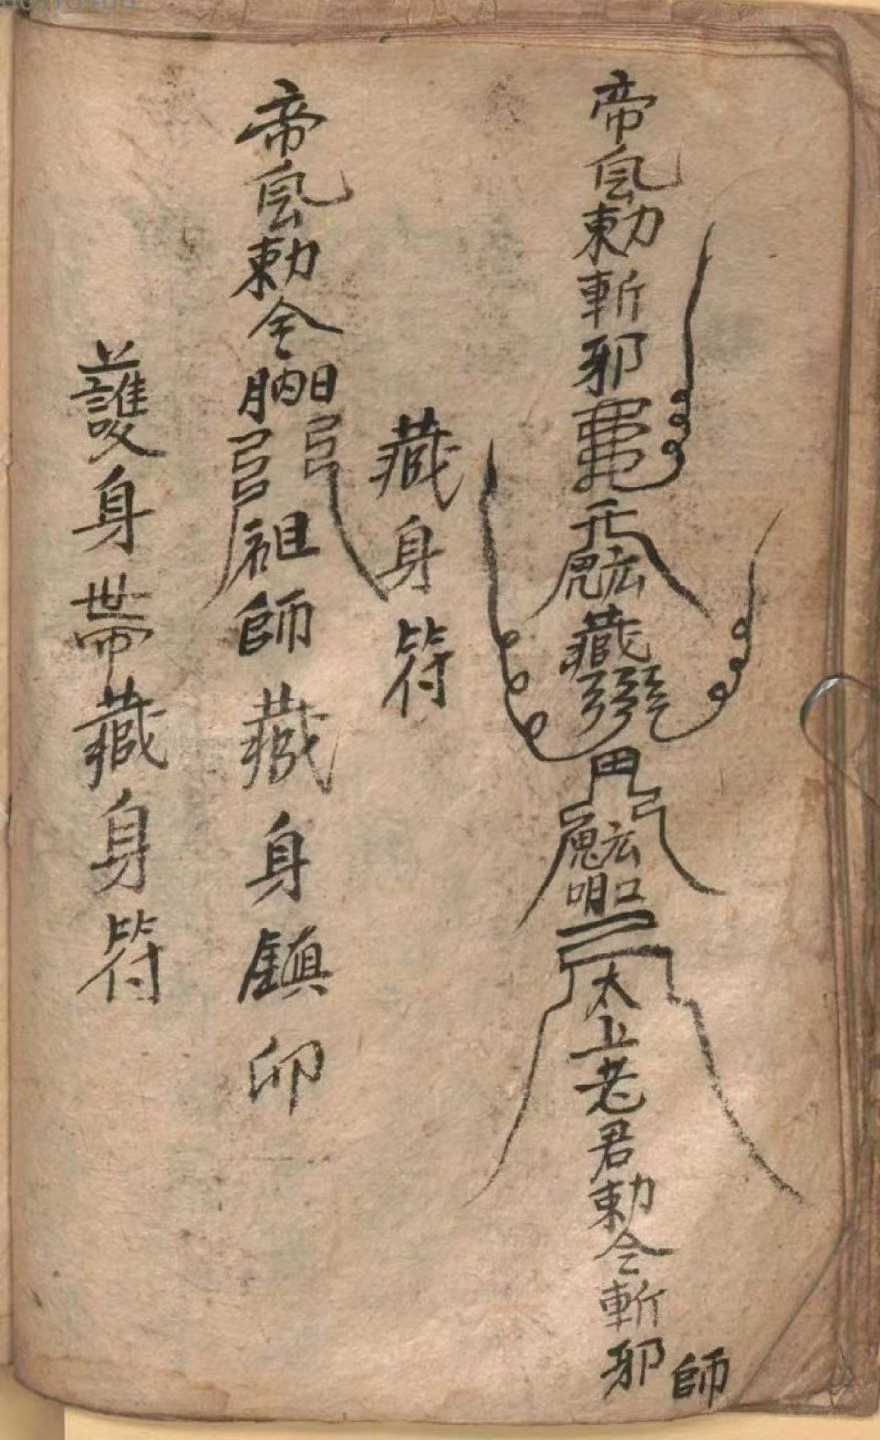 帝勅斬邪
藏
太上老君勅令斬邪
師
藏身符
帝勅令
祖師藏身鎮印
護身帶藏身符